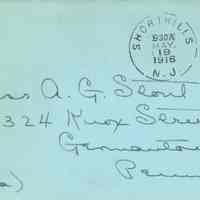 SHORT HILLS
930A
MAY
19
1916
N.J.
ss A. G. Stout
324 Knox Stree
Germantow
Penn
a)